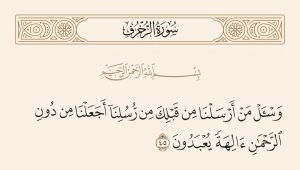 سُورَةُ الزُّخْرُفِ
بِسْمِ اللَّهِ الرَّحْمَٰنِ الرَّحِيمِ
وَسْـَٔلْ مَنْ أَرْسَلْنَا مِن قَبْلِكَ مِن رُّسُلِنَآ أَجَعَلْنَا مِن دُونِ
ٱلرَّحْمَٰنِ ءَالِهَةً يُعْبَدُونَ ٤٥